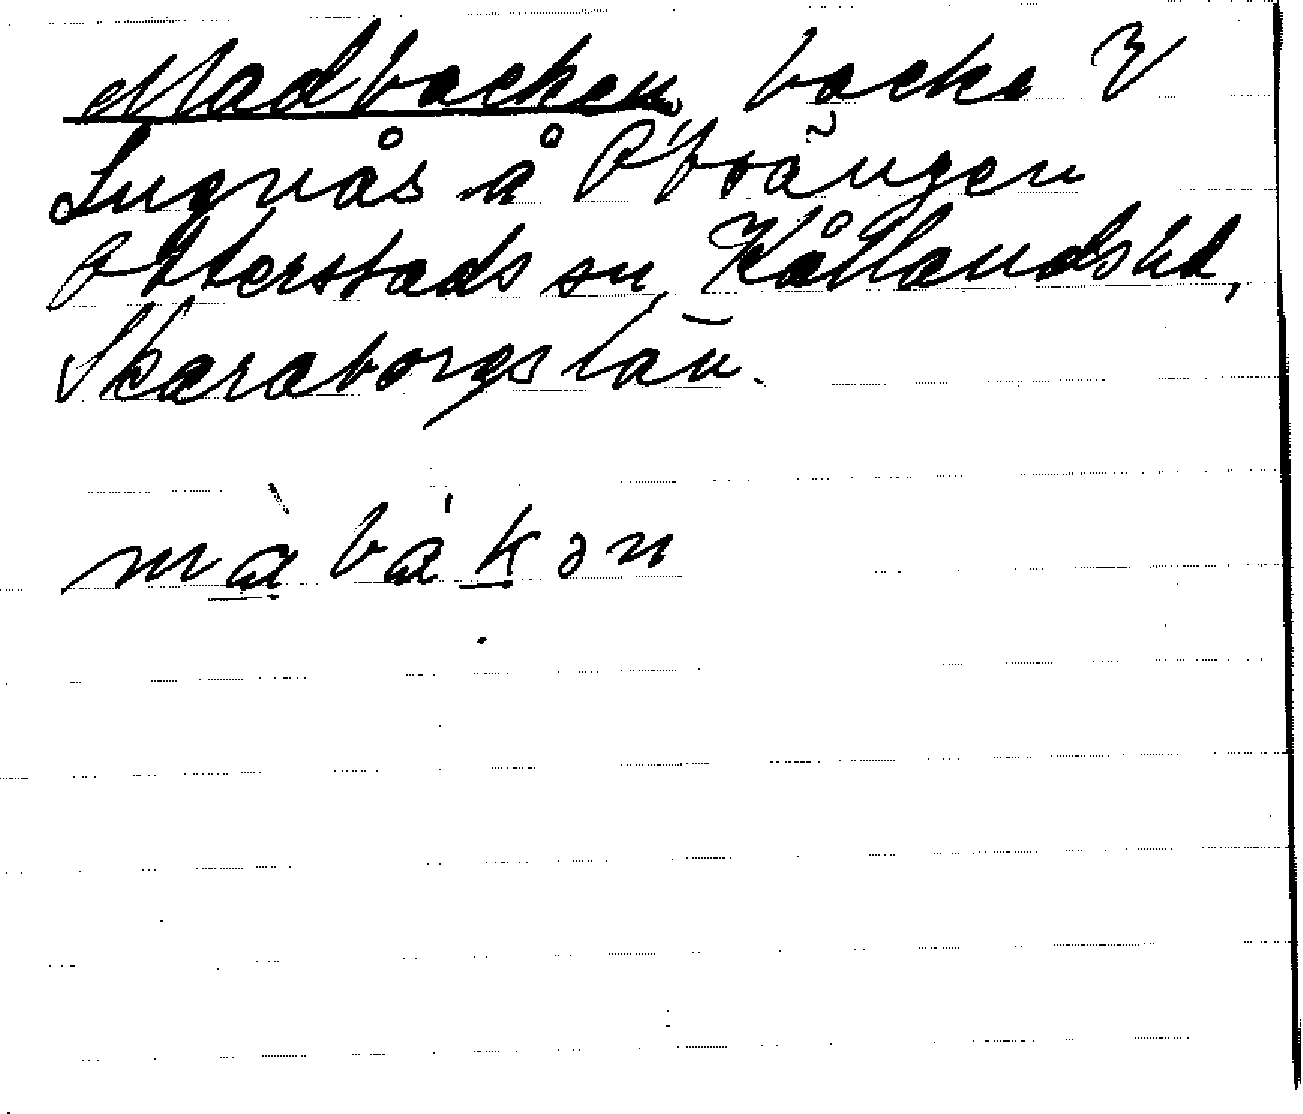 Madbacken, backe V
Lugnås å
Otterstads sn, Kållands hd,
Skaraborgs län.
màbákən